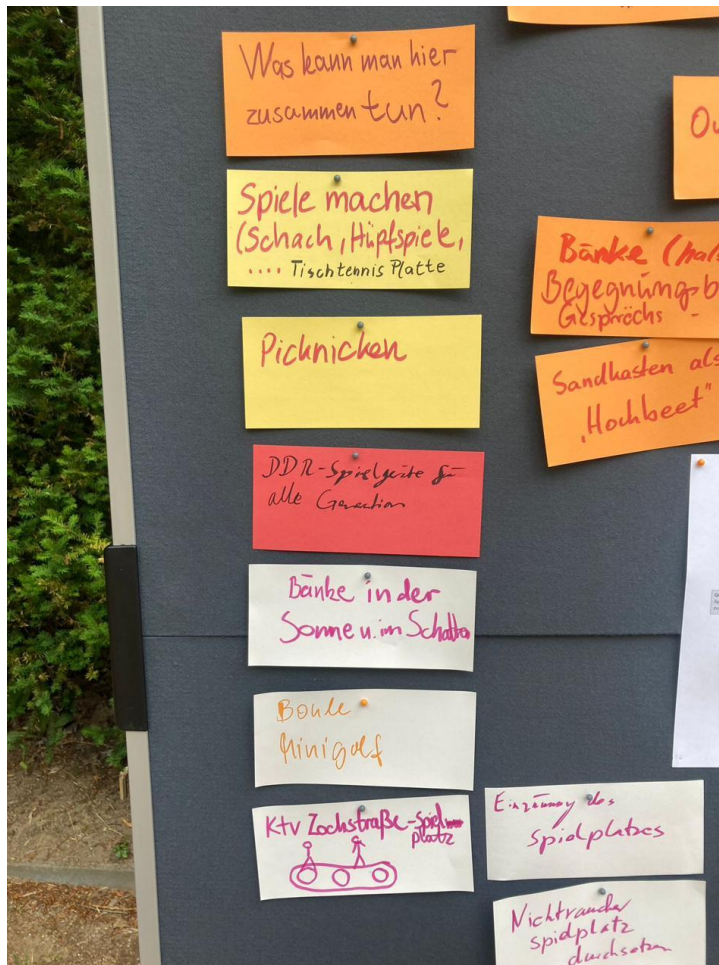 Was kann man hier
zusammen tun?
Spiele machen
(Schach, Hüpfspiele,
.... Tischtennis Platte
Picknicken
DDR-Spielgeräte für
alle Generation
Bänke in der
Sonne u. im Schatten
Boule
Minigolf
Ktv Zochstraße-Spiel
platz
Bänke (hal
Begegnungsb
Gesprächs -
Sandkasten als
„Hochbeet"
Einzäunung des
Spielplatzes
Nichtraucher
spielplatz
durchsetzen